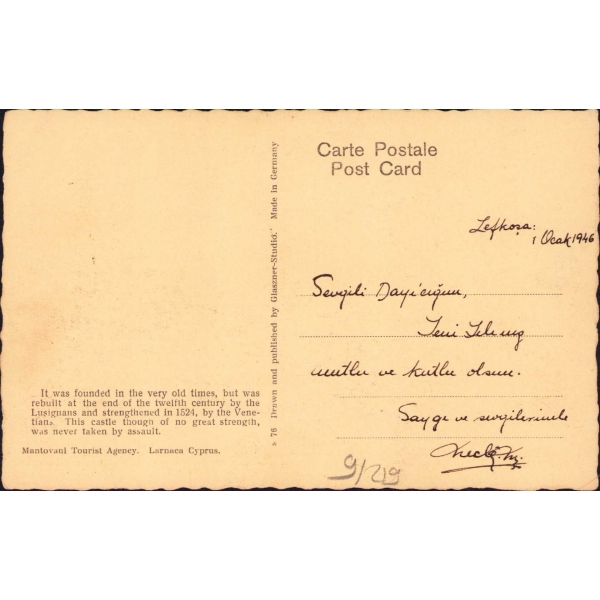 Carte Postale
Post Card
Lefkoşa:
1 Ocak 1946
Sevgili Dayıcığım,
Yeni
mutlu ve kutlu olsun.
Saygı ve sevgilerimle
9/219
It was founded in the very old times, but was
rebuilt at the end of the twelfth century by the
Lusignans and strengthened in 1524, by the Vene-
tians. This castle though of no great strength,
was never taken by assault.
Mantovani Tourist Agency. Larnaca Cyprus.
76 Drawn and published by Glaszner-Studio. Made in Germany